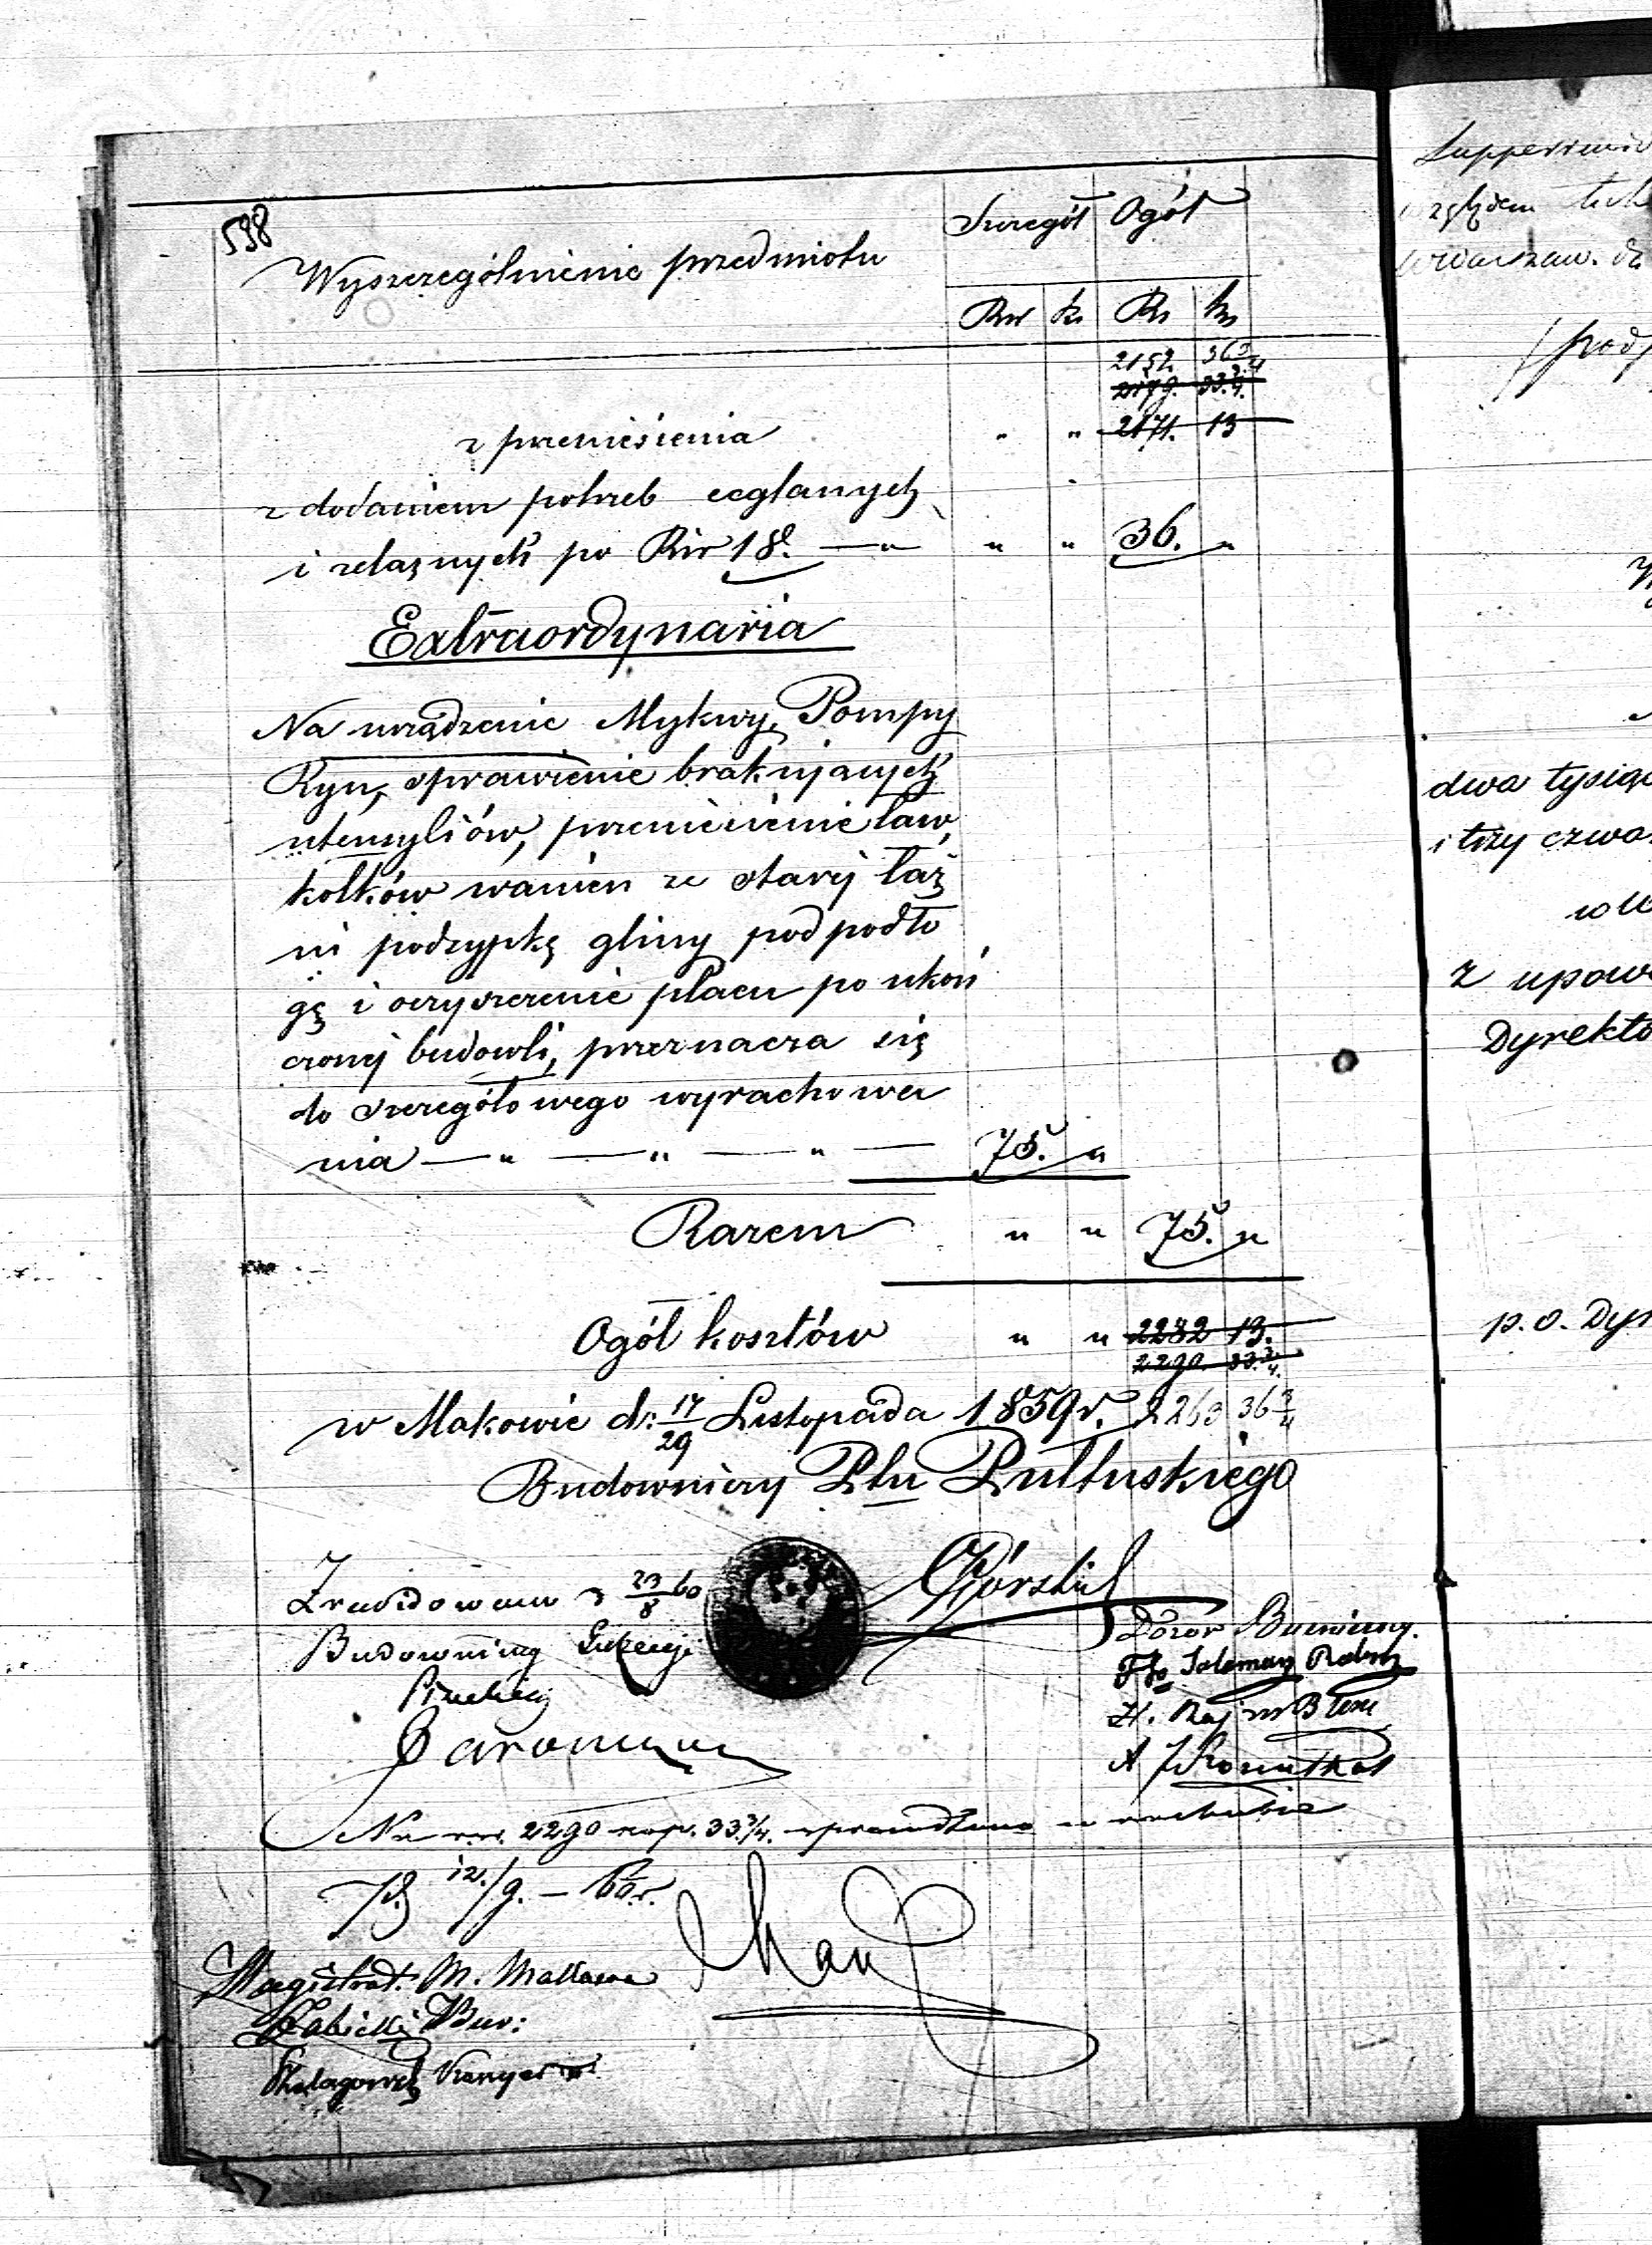 598
Wyszczególnienie przedmiotu
Szczegół Ogół
Rsr k. Rs ks
2152 36 3/4
2179. 33 3/4.
z przeniesienia " " 2171. 13
z dodaniem potrzeb ceglanych
i żelaznych po Rsr 18. — " " " 36. "
Extraordynaria
Na urządzenie Mykwy, Pompy
Ryn, sprawienie brakujących
utensyliów, przeniesienie ław,
kołków wanien ze starej łaź
ni podsypkę gliny pod podło
gę i oczyszczenie placu po ukoń
czonej budowli, przeznacza się
do szczegółowego wyrachowa
nia — " — " — " — 75. "
Razem " " 75. "
Ogół kosztów " " 2282 13.
2290. 33 3/4.
w Makowie d: 17/29 Listopada 1859 r. 2263 36 3/4
Budowniczy Ptu Pułtuskiego
Górski
Zrewidowano d 23/8 60
Budowniczy
Dozór Bużniczny.
A J Rosenthal
Na rsr. 2290 kop. 33 3/4. sprawdzono w rachubie
12./9. — 60 r.
Magistrat. M. Makowa
Żabicki Bur:
Supperrewid
względem tech
Warszaw. d
dwa tysiąc
i trzy czwar
z upow
Dyrekto
p.o. Dyr